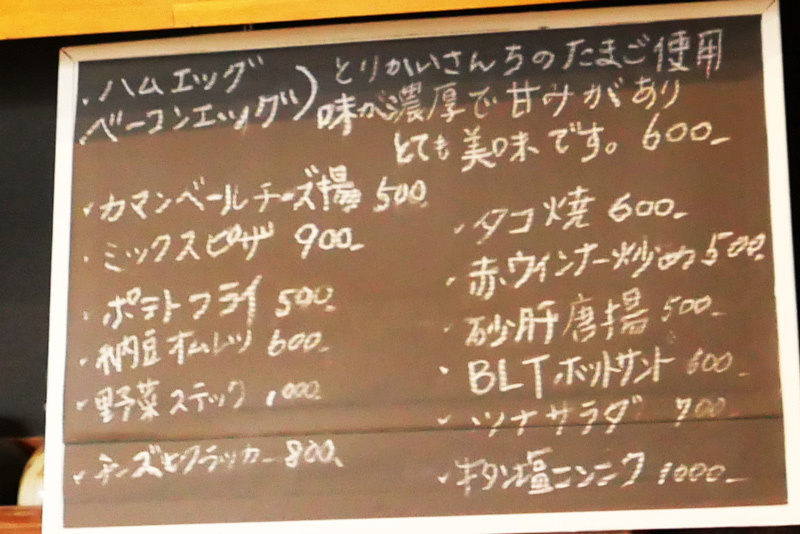 ・ハムエッグ
・ベーコンエッグ) とりかいさんちのたまご使用
味が濃厚で甘みがあり
とても美味です。600-
・カマンベールチーズ揚 500-
・ミックスピザ 900-
・ポテトフライ 500-
・納豆オムレツ 600-
・野菜スティック 1,000-
・チーズとクラッカー 800-
・タコ焼 600-
・赤ウィンナー炒め 500-
・砂肝唐揚 500-
・BLTホットサンド 600-
・ツナサラダ 700-
・牛タン塩ニンニク 1000-